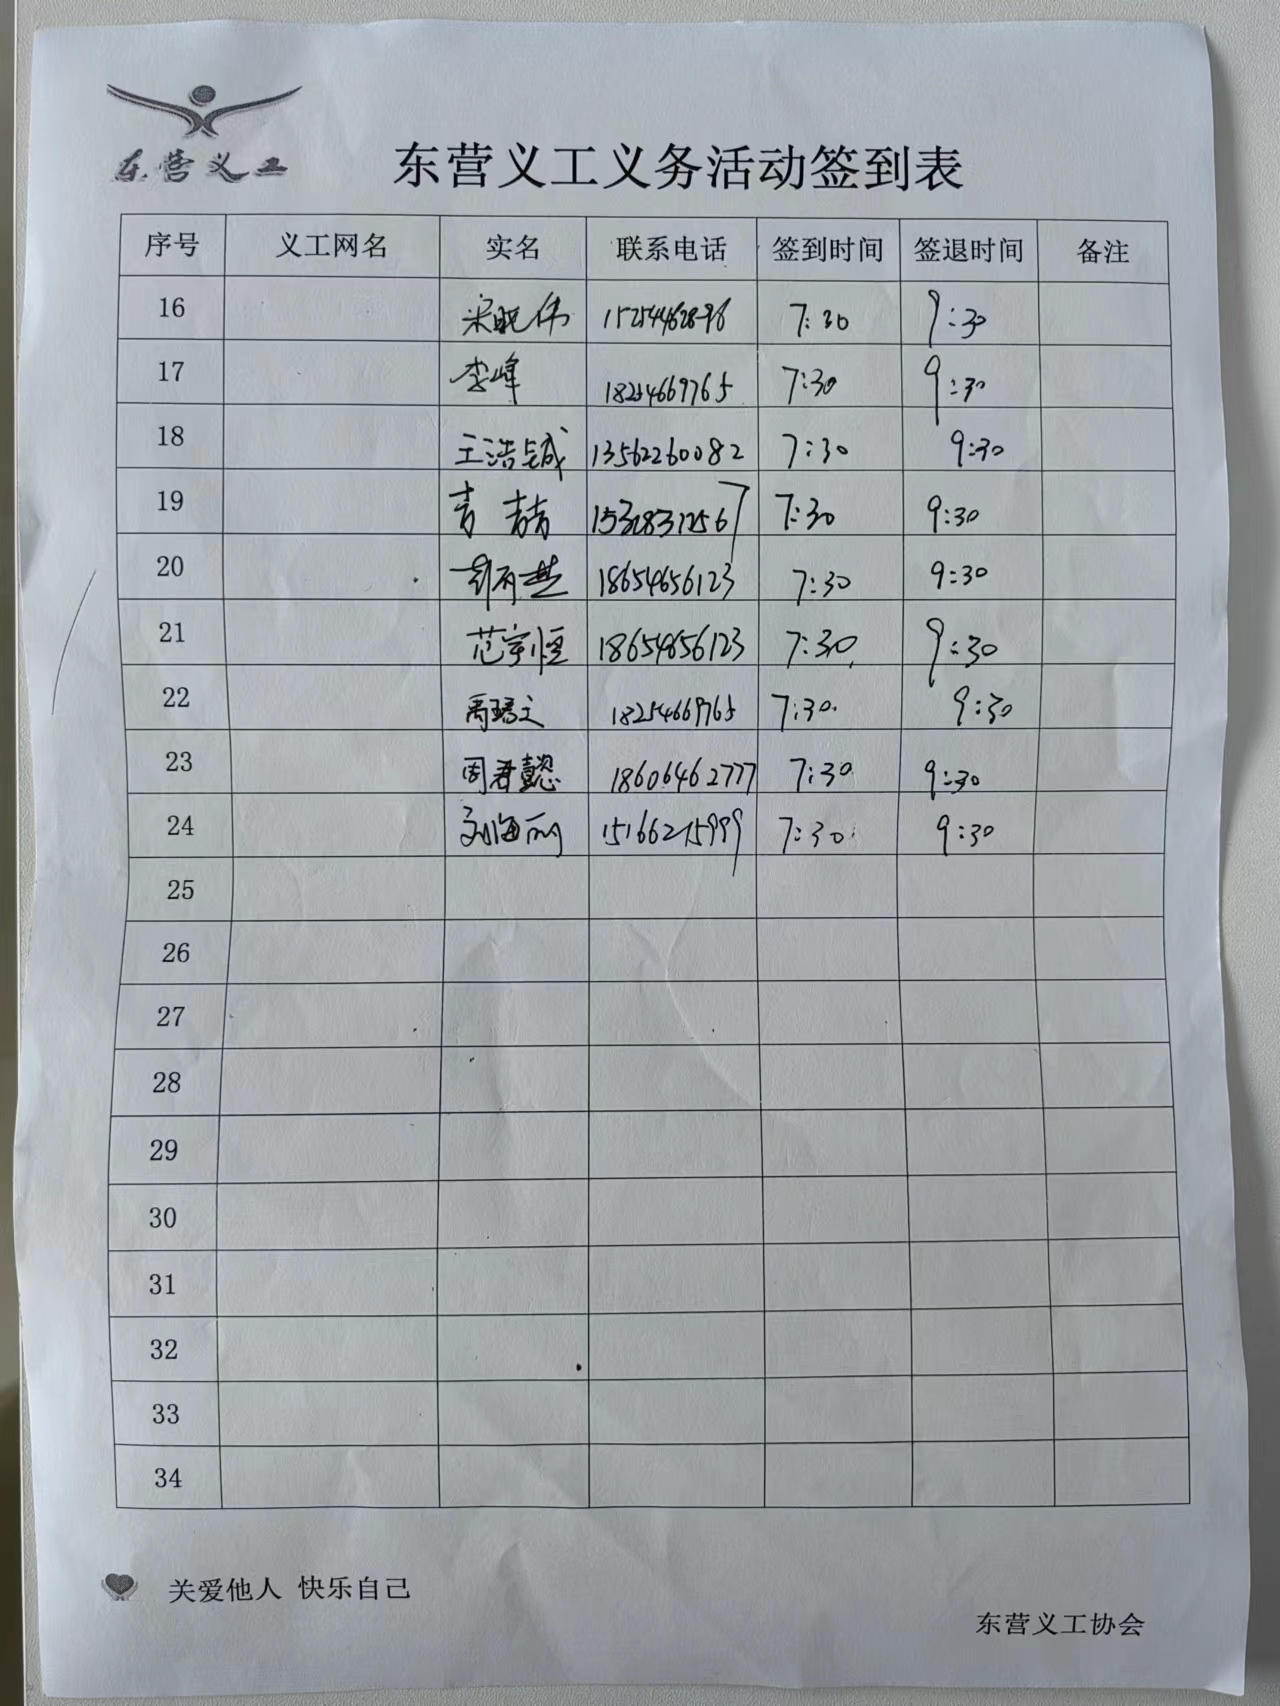 东营义工
东营义工义务活动签到表
序号 义工网名 实名 联系电话 签到时间 签退时间 备注
16 宋晓伟 15254462898 7:30 9:30
17 李峰 18254669765 7:30 9:30
18 王浩铖 13562260082 7:30 9:30
19 7:30 9:30
20 18654656123 7:30 9:30
21 范宇恒 18654656123 7:30 9:30
22 18254669765 7:30 9:30
23 周君懿 18606462777 7:30 9:30
24 刘海丽 15166215999 7:30 9:30
25
26
27
28
29
30
31
32
33
34
关爱他人 快乐自己
东营义工协会